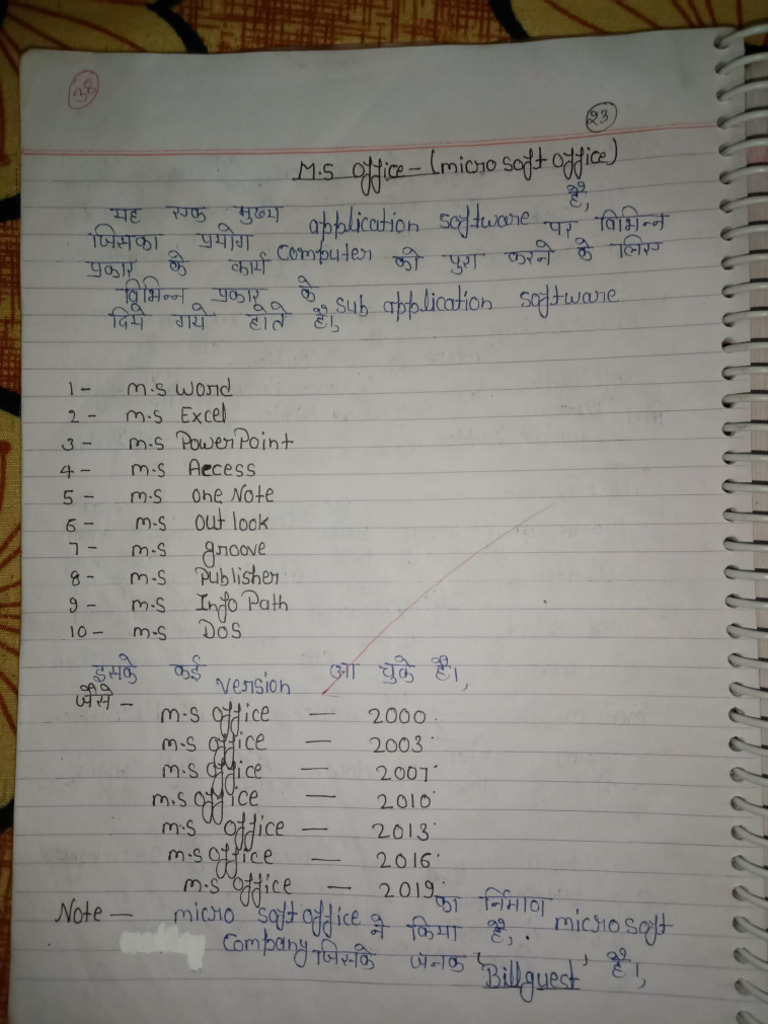 38
23
M.S Office - (microsoft office)
यह एक मुख्य application software है,
जिसका प्रयोग computer पर विभिन्न
प्रकार के कार्य को पुरा करने के लिए
विभिन्न प्रकार के sub application software
दिये गये होते है।,
1 - m.s word
2 - m.s Excel
3 - m.s PowerPoint
4 - m.s Access
5 - m.s one Note
6 - m.s out look
7 - m.s groove
8 - m.s Publisher
9 - m.s Info Path
10 - m.s DOS
इसके कई version आ चुके है।,
जैसे -
m.s office — 2000
m.s office — 2003
m.s office — 2007
m.s office — 2010
m.s office — 2013
m.s office — 2016
m.s office — 2019
Note - micro soft office का निमाण microsoft
company ने किया है, जिसके जनक 'Billguest' है।,